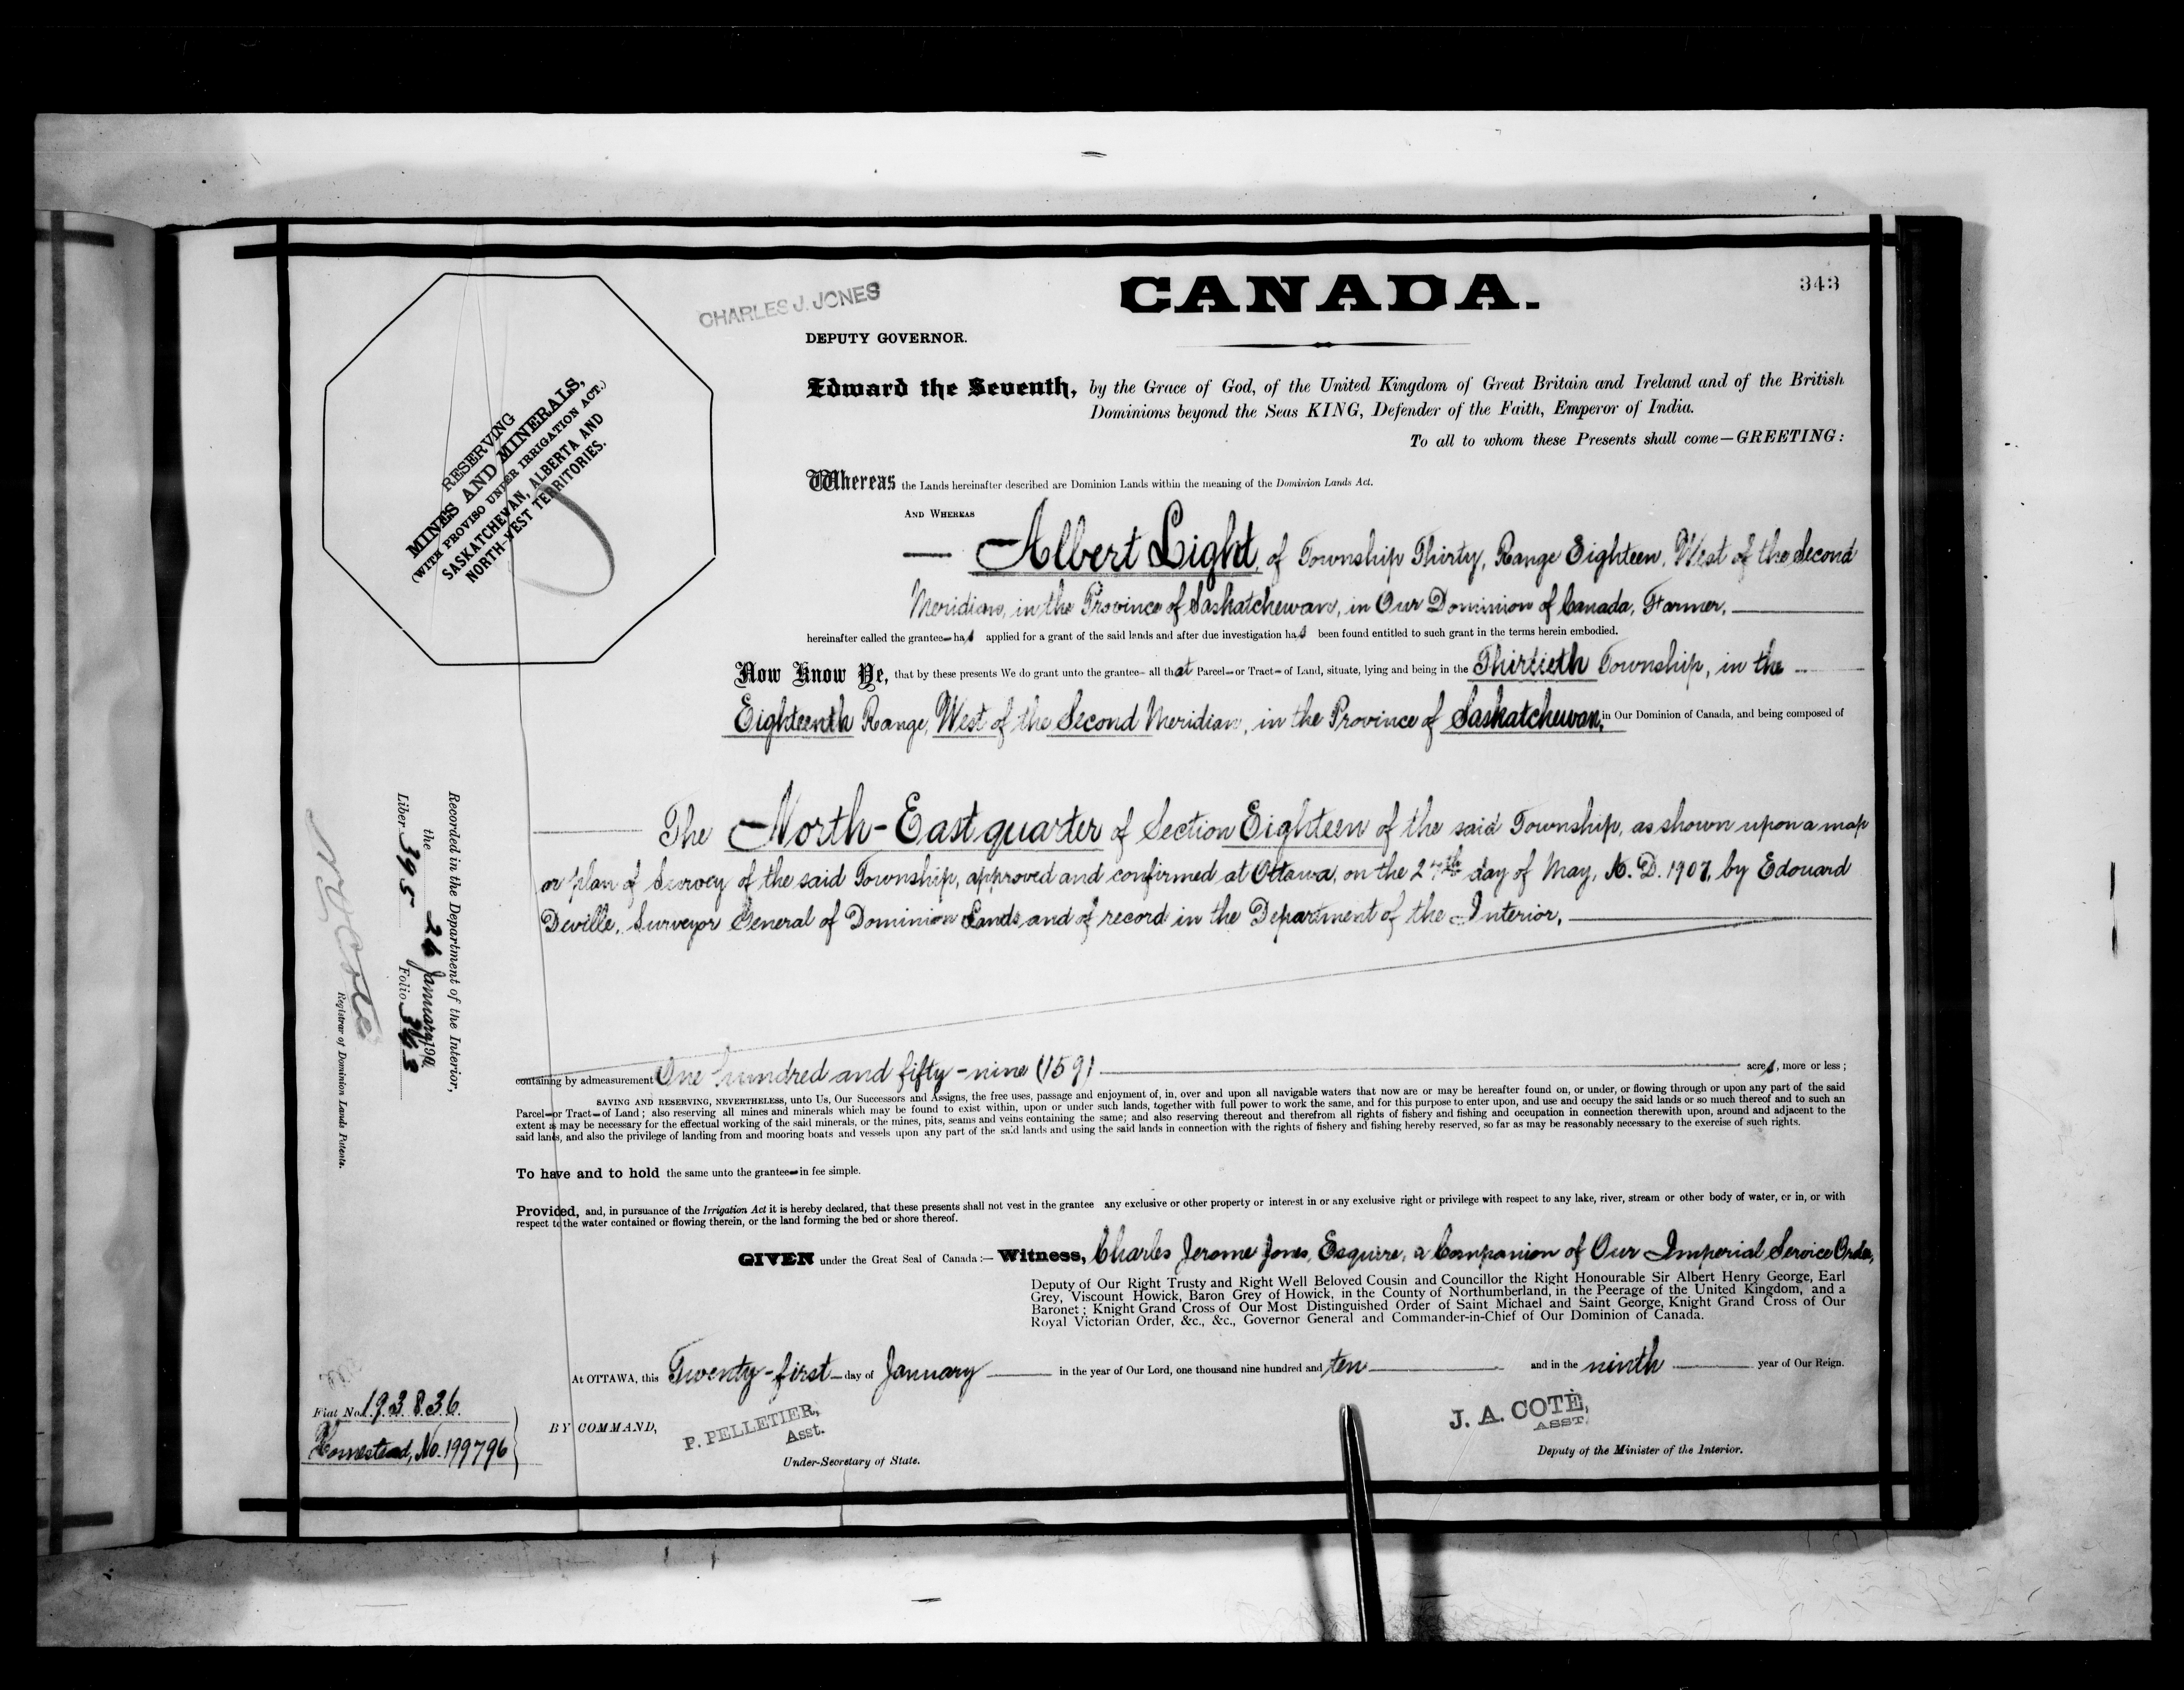 CANADA.
343
CHARLES J. JONES
DEPUTY GOVERNOR.
RESERVING
MINES AND MINERALS,
(WITH PROVISO UNDER IRRIGATION ACT.)
SASKATCHEWAN, ALBERTA AND
NORTH-WEST TERRITORIES.
Edward the Seventh, by the Grace of God, of the United Kingdom of Great Britain and Ireland and of the British
Dominions beyond the Seas KING, Defender of the Faith, Emperor of India.
To all to whom these Presents shall come—GREETING:
Whereas the Lands hereinafter described are Dominion Lands within the meaning of the Dominion Lands Act.
AND WHEREAS
Albert Light, of Township Thirty, Range Eighteen, West of the Second
Meridian, in the Province of Saskatchewan, in Our Dominion of Canada, Farmer,
hereinafter called the grantee has applied for a grant of the said lands and after due investigation has been found entitled to such grant in the terms herein embodied.
Now Know Ye, that by these presents We do grant unto the grantee all that Parcel or Tract of Land, situate, lying and being in the Thirtieth Township, in the
Eighteenth Range, West of the Second Meridian, in the Province of Saskatchewan, in Our Dominion of Canada, and being composed of
The North-East quarter of Section Eighteen of the said Township, as shown upon a map
or plan of Survey of the said Township, approved and confirmed at Ottawa, on the day of May, A.D. 1907, by Edouard
Deville, Surveyor General of Dominion Lands and of record in the Department of the Interior,
containing by admeasurement One hundred and fifty-nine (159) acres, more or less;
SAVING AND RESERVING, NEVERTHELESS, unto Us, Our Successors and Assigns, the free uses, passage and enjoyment of, in, over and upon all navigable waters that now are or may be hereafter found on, or under, or flowing through or upon any part of the said
Parcel or Tract of Land; also reserving all mines and minerals which may be found to exist within, upon or under such lands, together with full power to work the same, and for this purpose to enter upon, and use and occupy the said lands or so much thereof and to such an
extent as may be necessary for the effectual working of the said minerals, or the mines, pits, seams and veins containing the same; and also reserving thereout and therefrom all rights of fishery and fishing and occupation in connection therewith upon, around and adjacent to the
said lands, and also the privilege of landing from and mooring boats and vessels upon any part of the said lands and using the said lands in connection with the rights of fishery and fishing hereby reserved, so far as may be reasonably necessary to the exercise of such rights.
To have and to hold the same unto the grantee in fee simple.
Provided, and, in pursuance of the Irrigation Act it is hereby declared, that these presents shall not vest in the grantee any exclusive or other property or interest in or any exclusive right or privilege with respect to any lake, river, stream or other body of water, or in, or with
respect to the water contained or flowing therein, or the land forming the bed or shore thereof.
GIVEN under the Great Seal of Canada:—Witness, Charles Jerome Jones, Esquire, a Companion of Our Imperial Service Order,
Deputy of Our Right Trusty and Right Well Beloved Cousin and Councillor the Right Honourable Sir Albert Henry George, Earl
Grey, Viscount Howick, Baron Grey of Howick, in the County of Northumberland, in the Peerage of the United Kingdom, and a
Baronet; Knight Grand Cross of Our Most Distinguished Order of Saint Michael and Saint George, Knight Grand Cross of Our
Royal Victorian Order, &c., &c., Governor General and Commander-in-Chief of Our Dominion of Canada.
At OTTAWA, this Twenty-first day of January in the year of Our Lord, one thousand nine hundred and ten and in the ninth year of Our Reign.
BY COMMAND,
P. PELLETIER,
Asst.
Under-Secretary of State.
J. A. COTÉ,
ASST.
Deputy of the Minister of the Interior.
Recorded in the Department of the Interior,
the 26 January 190
Liber 395 Folio 343
Registrar of Dominion Lands Patents.
Fiat No. 193836.
Homestead, No. 199796